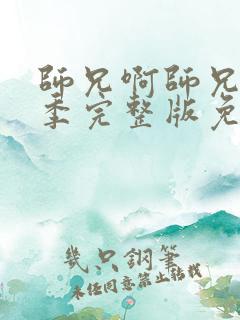 師兄啊師兄
季完整版免
幾只鋼筆
未经同意禁止转载